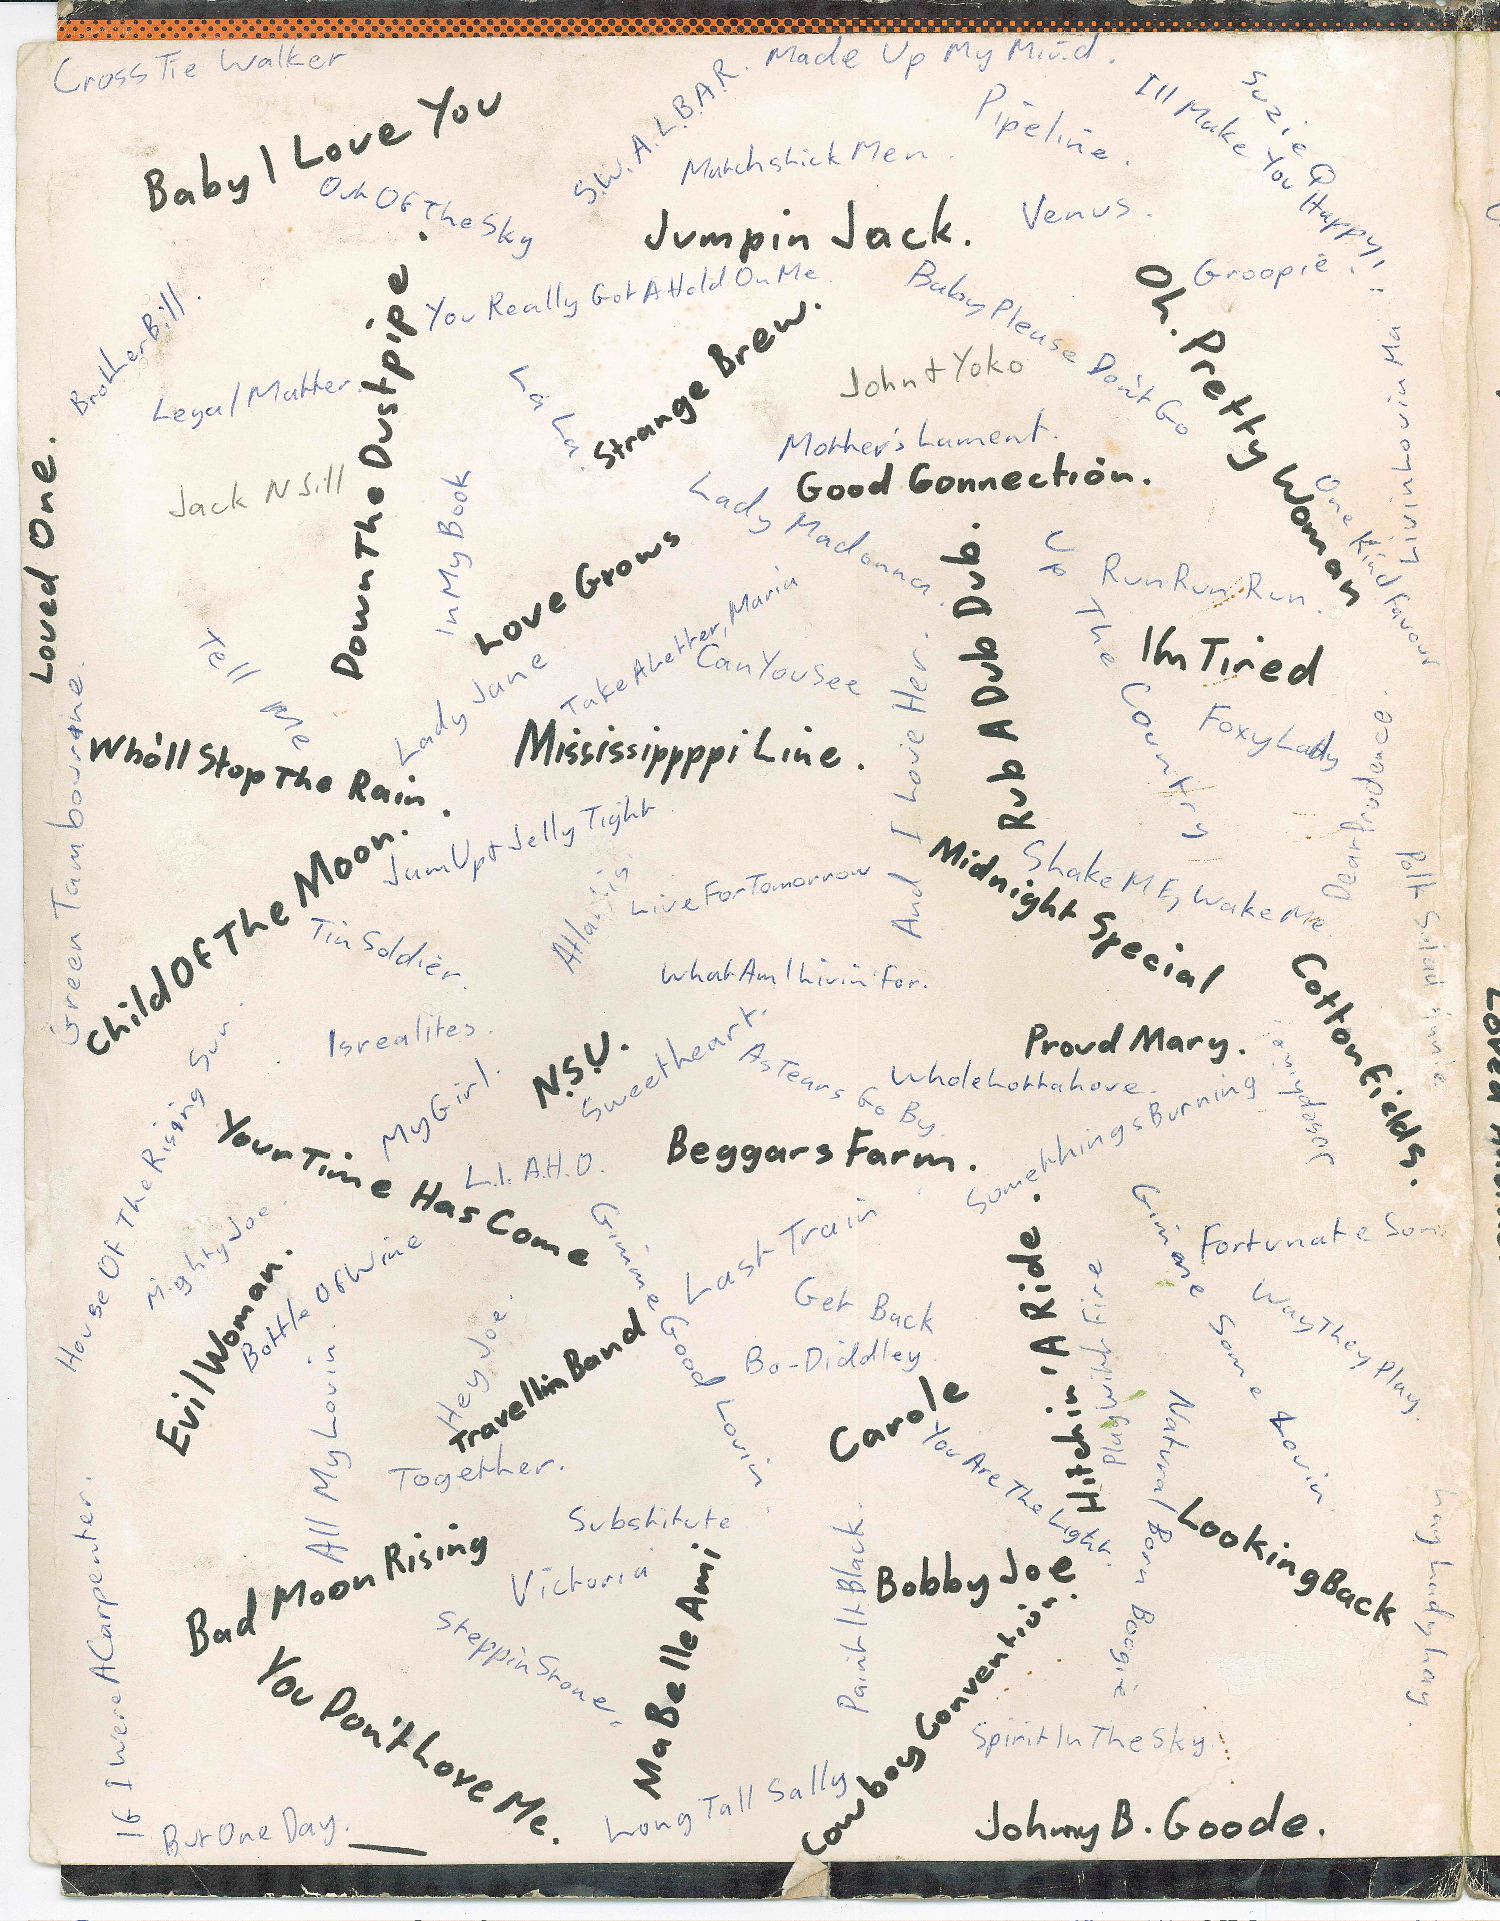 Cross Tie Walker
Made Up My Mind.
S.W.A.L.B.A.R.
Baby I Love You
Pipeline.
I'll Make You Happy!
Suzie Q
Matchstick Men.
Out Of The Sky
Venus.
Jumpin Jack.
Groopie.
You Really Got A Hold On Me.
Baby Please Don't Go
Oh. Pretty Woman
Brother Bill.
Legal Matter.
Down The Dustpipe.
La La.
Strange Brew.
John + Yoko
Livin Lovin Ma
Mother's Lament.
Good Gonnection.
Loved One.
Jack N Jill
In My Book
Lady Madonna.
One Kind Favour
Love Grows
Rub A Dub Dub.
Up The Country
Run Run Run.
Take A Letter, Maria
Tell Me
Lady Jane
Can You See
I'm Tired
And I Love Her.
Foxy Lady
Green Tambourine.
Who'll Stop The Rain.
Mississipppppi Line.
Dear Prudence.
Jum Up + Jelly Tight
Child Of The Moon.
Midnight Special
Shake Me, Wake Me
Live For Tomorrow
Atlantis.
Tin Soldier.
What Am I Livin' For.
Cotton Fields.
Isrealites.
N.S.U.
Sweetheart.
Proud Mary.
As Tears Go By.
Whole Lotta Love.
House Of The Rising Sun.
My Girl.
Your Time Has Come
L.I.A.H.O.
Beggars Farm.
Somethings Burning
Mighty Joe.
Evil Woman.
Bottle Of Wine
Gimme Good Lovin.
Last Train
Hitchin 'A Ride.
Gimme Some Lovin
Fortunate Son
Get Back
Hey Joe.
Travellin Band
Bo-Diddley
Play With Fire
Way They Play.
All My Lovin
Together.
Carole
You Are The Light.
Natural Born Boogie
Looking Back
Substitute
Bad Moon Rising
Victoria
Bobby Joe
Paint It Black.
Lay Lady Lay.
Steppin Stone.
Ma Belle Ami
You Don't Love Me.
If I Were A Carpenter.
Cowboy Convention.
Spirit In The Sky.
Long Tall Sally
But One Day.
Johnny B. Goode.